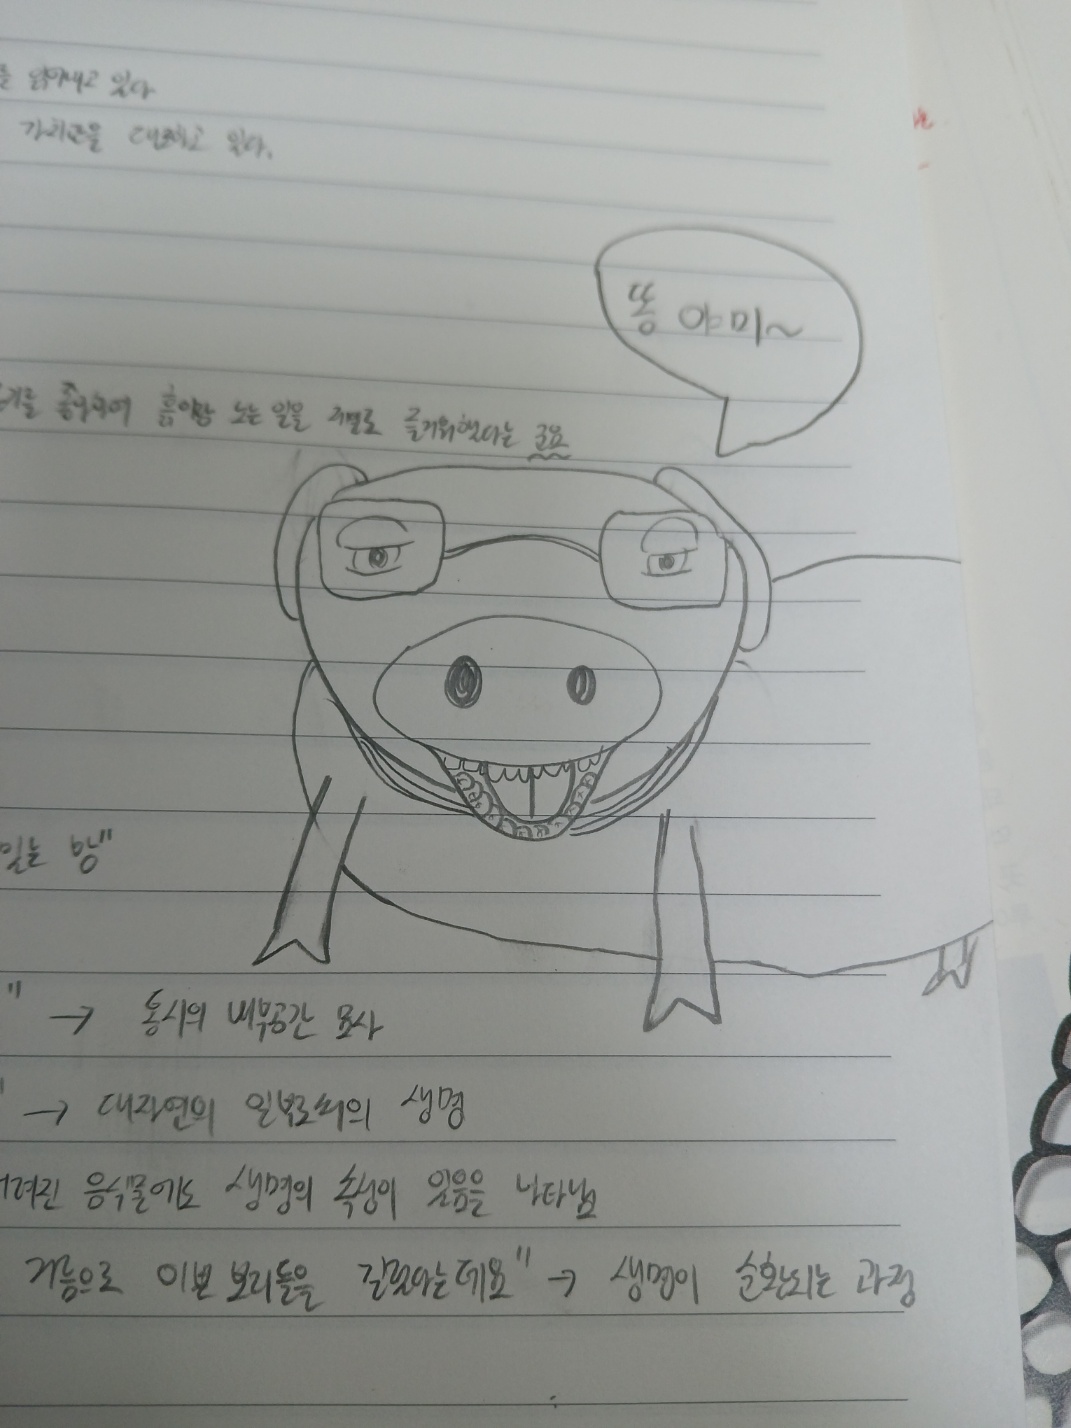 담아내고 있다
가치관을 대표하고 있다.
똥 야미~
를 좋아하여 흙이랑 노는 일을 즐거워했다는
일는 양"
" → 동시의 내부공간 묘사
" → 대자연의 일부로써의 생명
려진 음식물에도 생명의 속성이 있음을 나타냄
거름으로 이번 보리들을 길렀다는데요" → 생명이 순환되는 과정